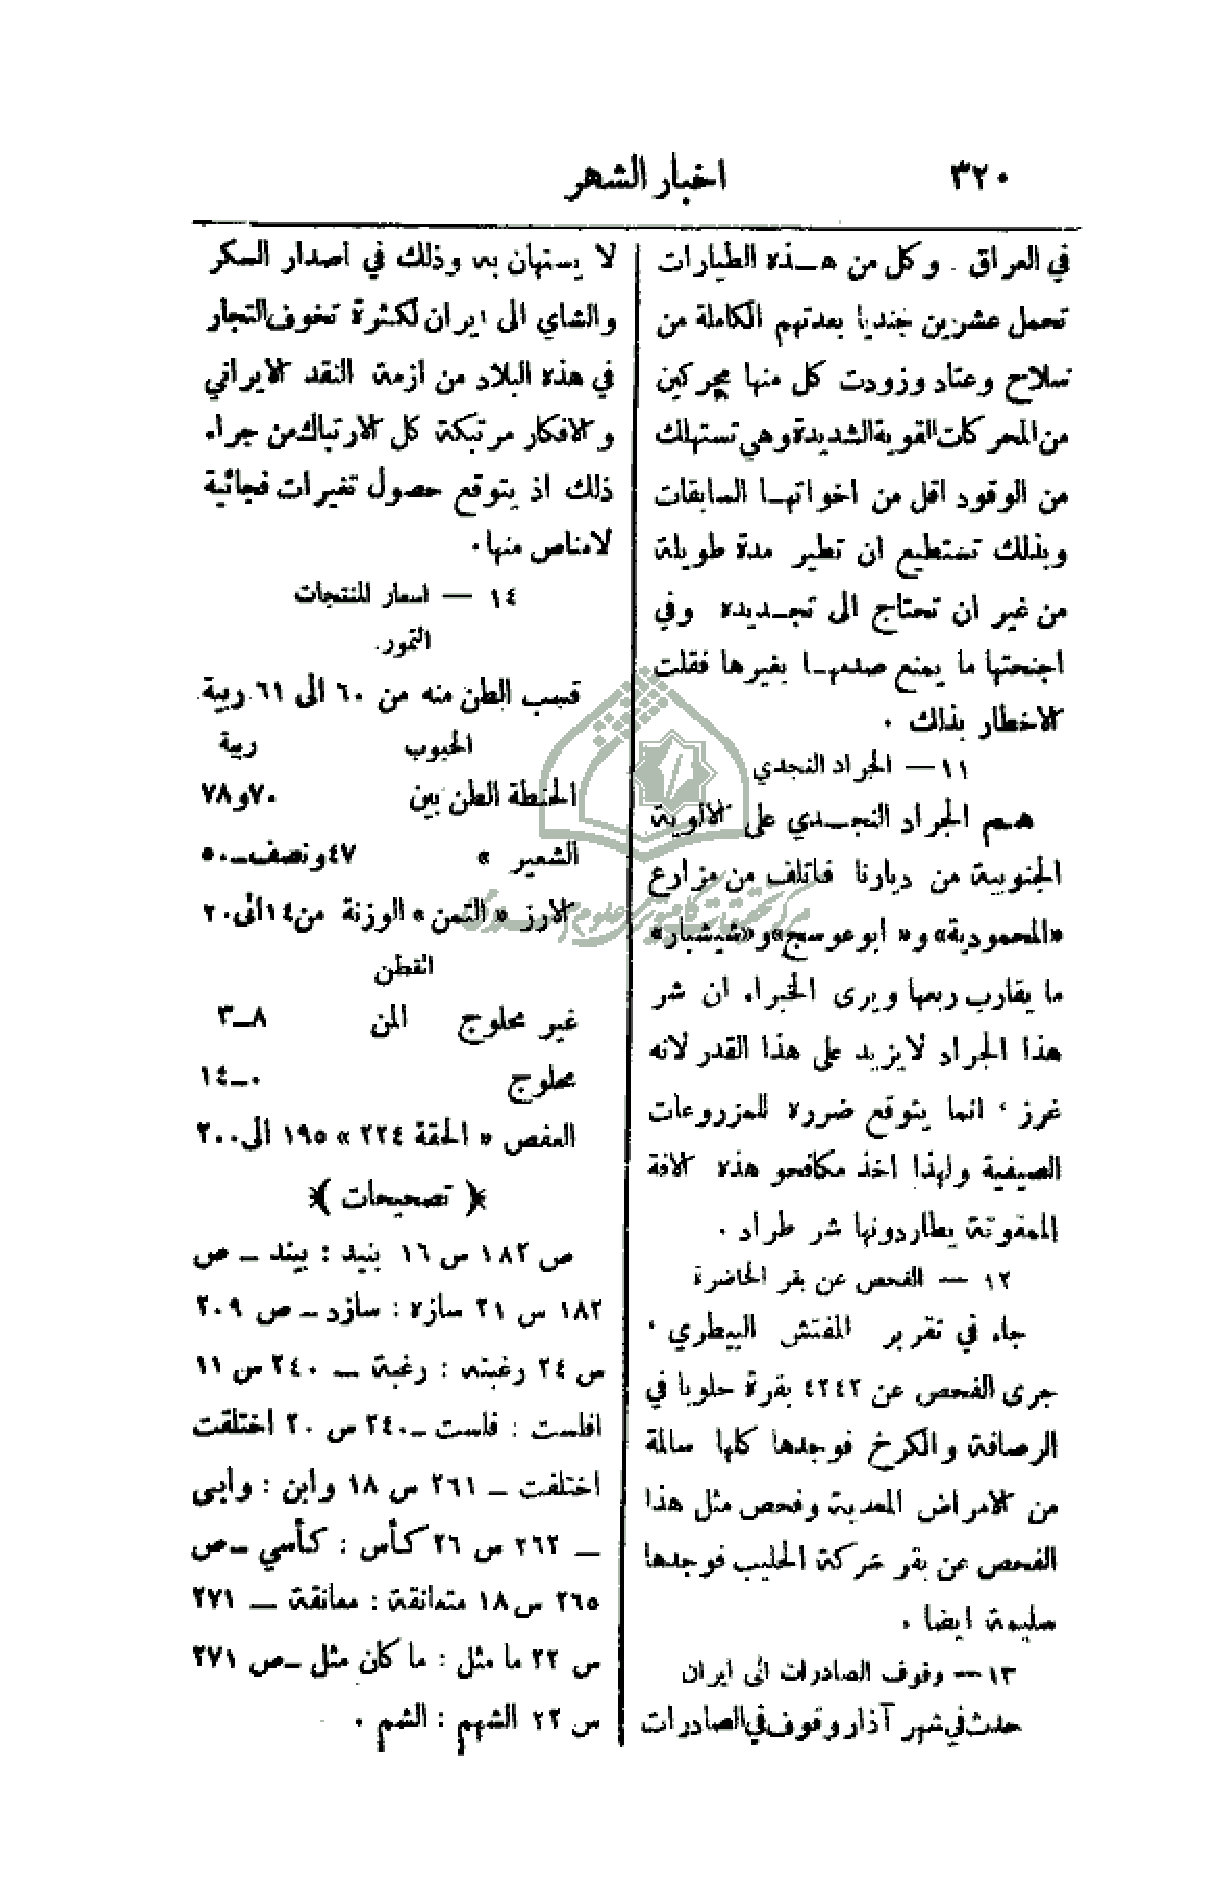 ٣٢٠
اخبار الشهر
في العراق . وكل من هـذه الطيارات
تحمل عشرين جنديا بعدتهم الكاملة من
سلاح وعتاد وزودت كل منها بمحركين
من المحركات القوية الشديدة وهي تستهلك
من الوقود اقل من اخواتهـا السابقات
وبذلك تستطيع ان تطير مدة طويلة
من غير ان تحتاج الى تجـديده وفي
اجنحتها ما يمنع صدمهـا بغيرها فقلت
الاخطار بذلك .
١١ — الجراد النجدي
هـم الجراد النجـدي على الالوية
الجنوبية من ديارنا فاتلف من مزارع
«المحمودية» و« ابو عوسج»و«شيشبار»
ما يقارب ربعها ويرى الخبراء ان شر
هذا الجراد لا يزيد على هذا القدر لانه
غرز ، انما يتوقع ضرره للمزروعات
الصيفية ولهذا اخذ مكافحو هذه الافة
الممقوتة يطاردونها شر طراد .
١٢ — الفحص عن بقر الحاضرة
جاء في تقرير المفتش البيطري ،
جرى الفحص عن ٤٢٤٢ بقرة حلوبا في
الرصافة والكرخ فوجدها كلها سالمة
من الامراض المعدية وفحص مثل هذا
الفحص عن بقر شركة الحليب فوجدها
سليمة ايضا .
١٣ — وقوف الصادرات الى ايران
حدث في شهر آذار وقوف في الصادرات
لا يستهان به وذلك في اصدار السكر
والشاي الى ايران لكثرة تخوف التجار
في هذه البلاد من ازمة النقد الايراني
والافكار مرتبكة كل الارتباك من جراء
ذلك اذ يتوقع حصول تغيرات فجائية
لامناص منها.
١٤ — اسعار المنتجات
التمور.
قسب الطن منه من ٦٠ الى ٦١ ربية.
الحبوب ربية
الحنطة الطن بين ٧٠و٧٨
الشعير » ٤٧ونصف–٥٠
الارز « التمن » الوزنة من١٤الى٢٠
القطن
غير محلوج المن ٨–٣
محلوج ٠–١٤
العفص « الحقة ٢٢٤ » ١٩٥ الى٢٠٠
( تصحيحات )
ص ١٨٢ س ١٦ بنيد : بيند – ص
١٨٢ س ٢١ سازه : سازد – ص ٢٠٩
س ٢٤ رغبته : رغبة – ٢٤٠ س ١١
افلست : فلست –٢٤٠ س ٢٠ اختلقت
اختلفت – ٢٦١ س ١٨ وابن : وابي
– ٢٦٢ س ٢٦ كأس : كأسي –ص
٢٦٥ س١٨ متعانقة : معانقة – ٢٧١
س ٢٢ ما مثل : ما كان مثل –ص ٢٧١
س ٢٣ الشهم : الشم .